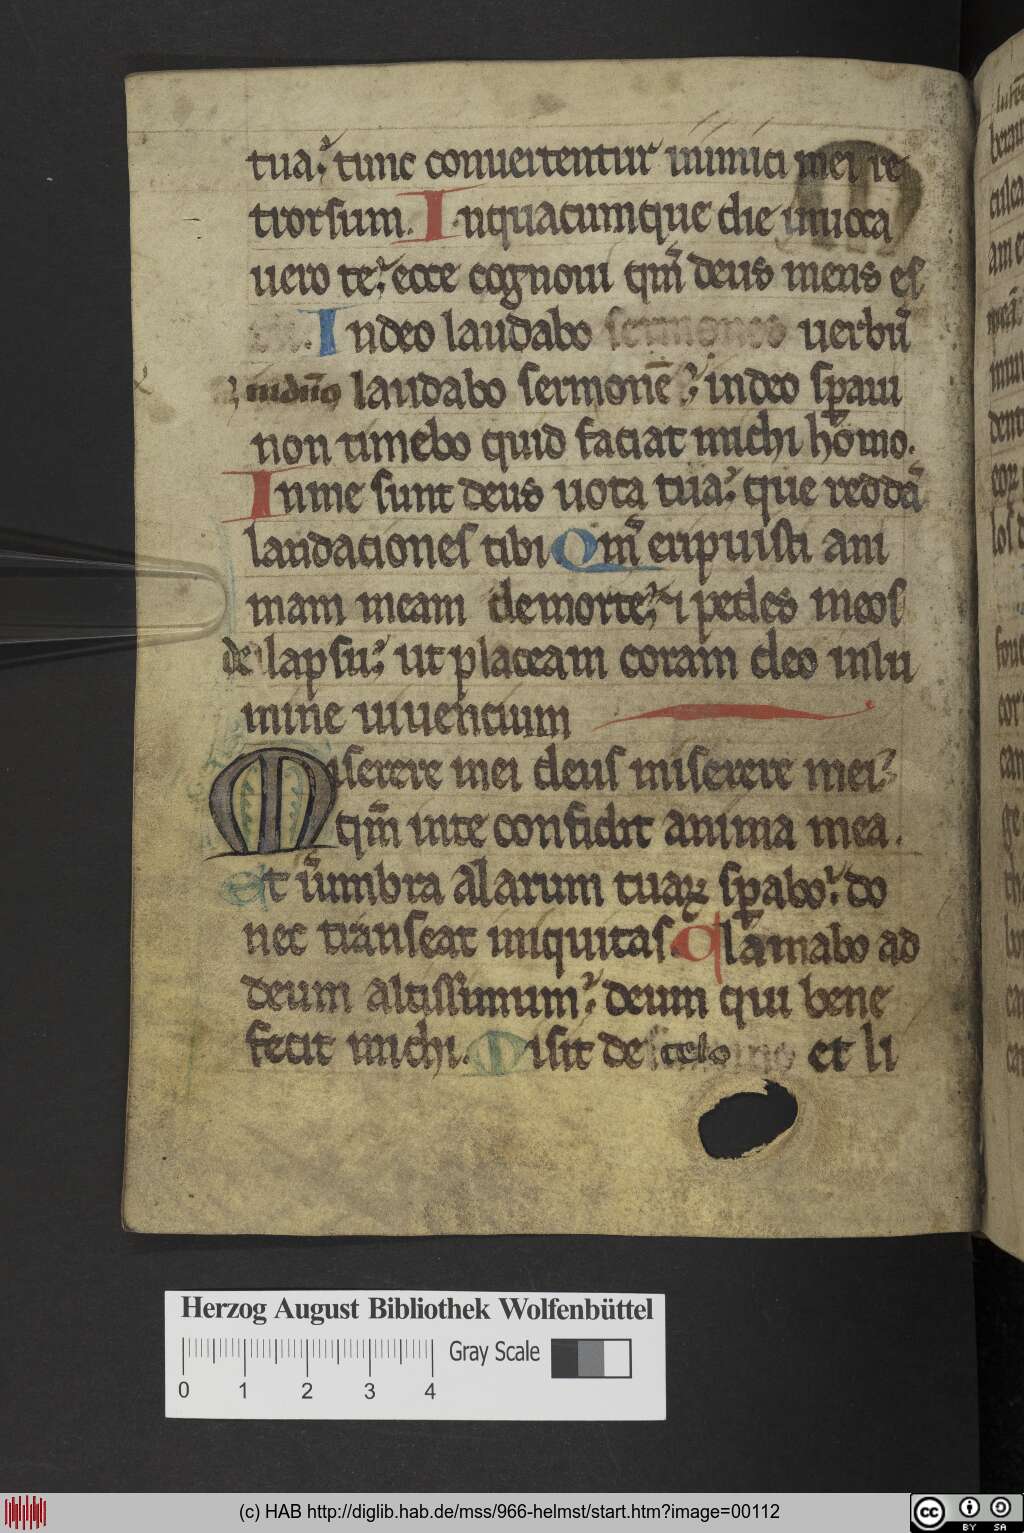 tua. tunc conuertentur inimici mei re
trorsum. Inquacumque die inuoca
uero te. ecce cognoui qm̄ deus meus es
Indeo laudabo sermones uerbū
indn̄o laudabo sermonē. indeo sp̄aui
non timebo quid faciat michi homo.
Inme sunt deus uota tua. que reddā
laudationes tibi Qm̄ eripuisti ani
mam meam demorte. pedes meos
de lapsu. ut placeam coram deo inlu
mine uiuentium
Miserere mei deus miserere mei.
qm̄ inte confidit anima mea.
Et ūmbra alarum tuaꝝ sp̄abo. do
nec transeat iniquitas. Clamabo ad
deum altissimum. deum qui bene
fecit michi. Misit de celo et li
Herzog August Bibliothek Wolfenbüttel
Gray Scale
0 1 2 3 4
(c) HAB http://diglib.hab.de/mss/966-helmst/start.htm?image=00112
cc BY SA